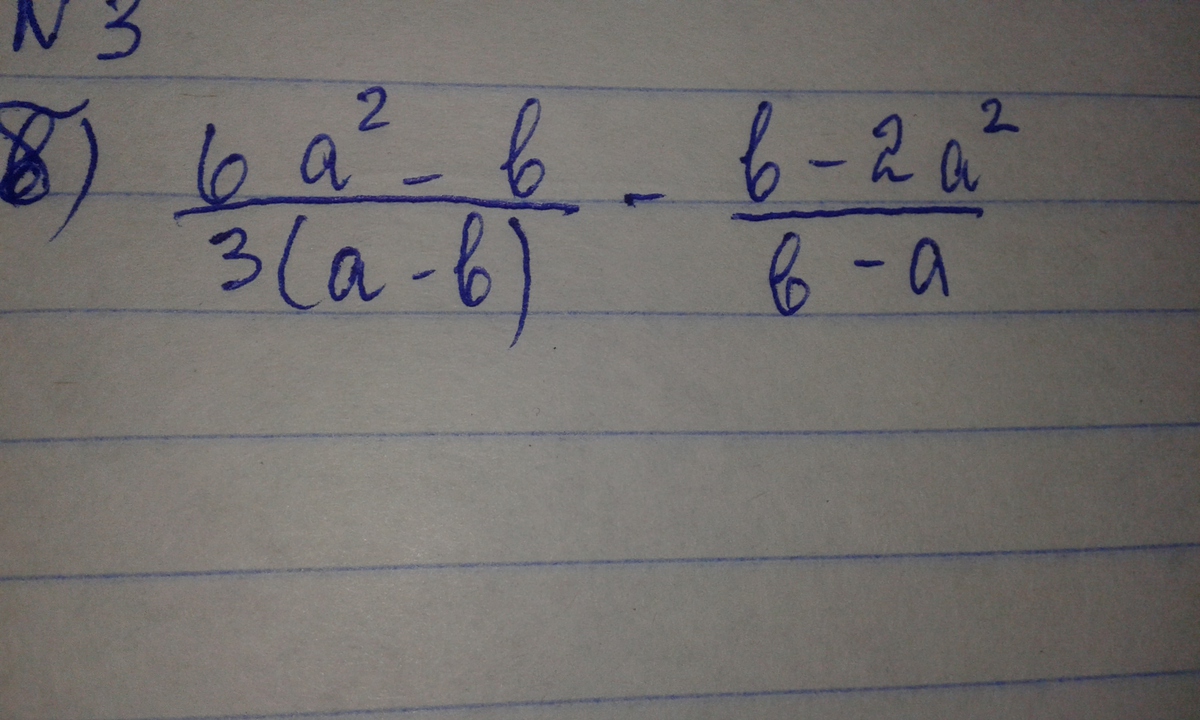 N 3
б) 6 a² - b / 3(a - b) - b - 2 a² / b - a